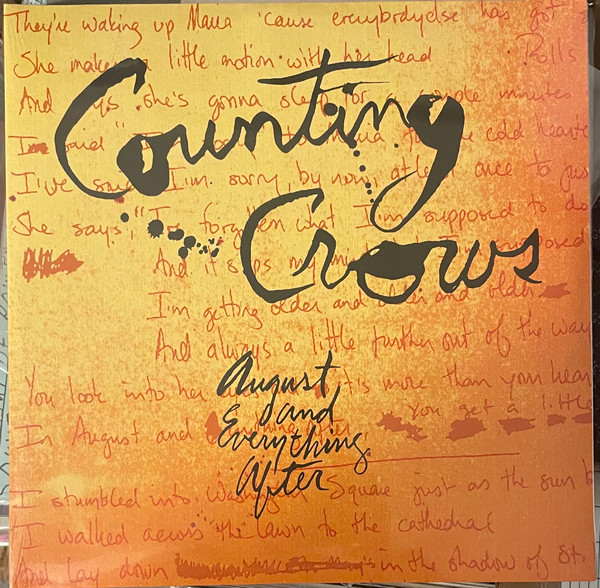 They're waking up Maria 'cause everybody else has got
She makes a little motion with her head Rolls
And says she's gonna sleep for a couple minutes
I said "I'm to Maria for the cold hearte
I've said I'm sorry, by now, at least once to jus
She says, "I've forgotten what I'm supposed to do
And it slips my mind I'm supposed
I'm getting older and older and older
And always a little further out of the way
You look into her it's more than your hear
You get a little
In August and everything after,
I stumbled into Washington Square just as the sun b
I walked across the lawn to the cathedral
And lay down in the shadow of St.
Counting
Crows
August
and
Everything
After